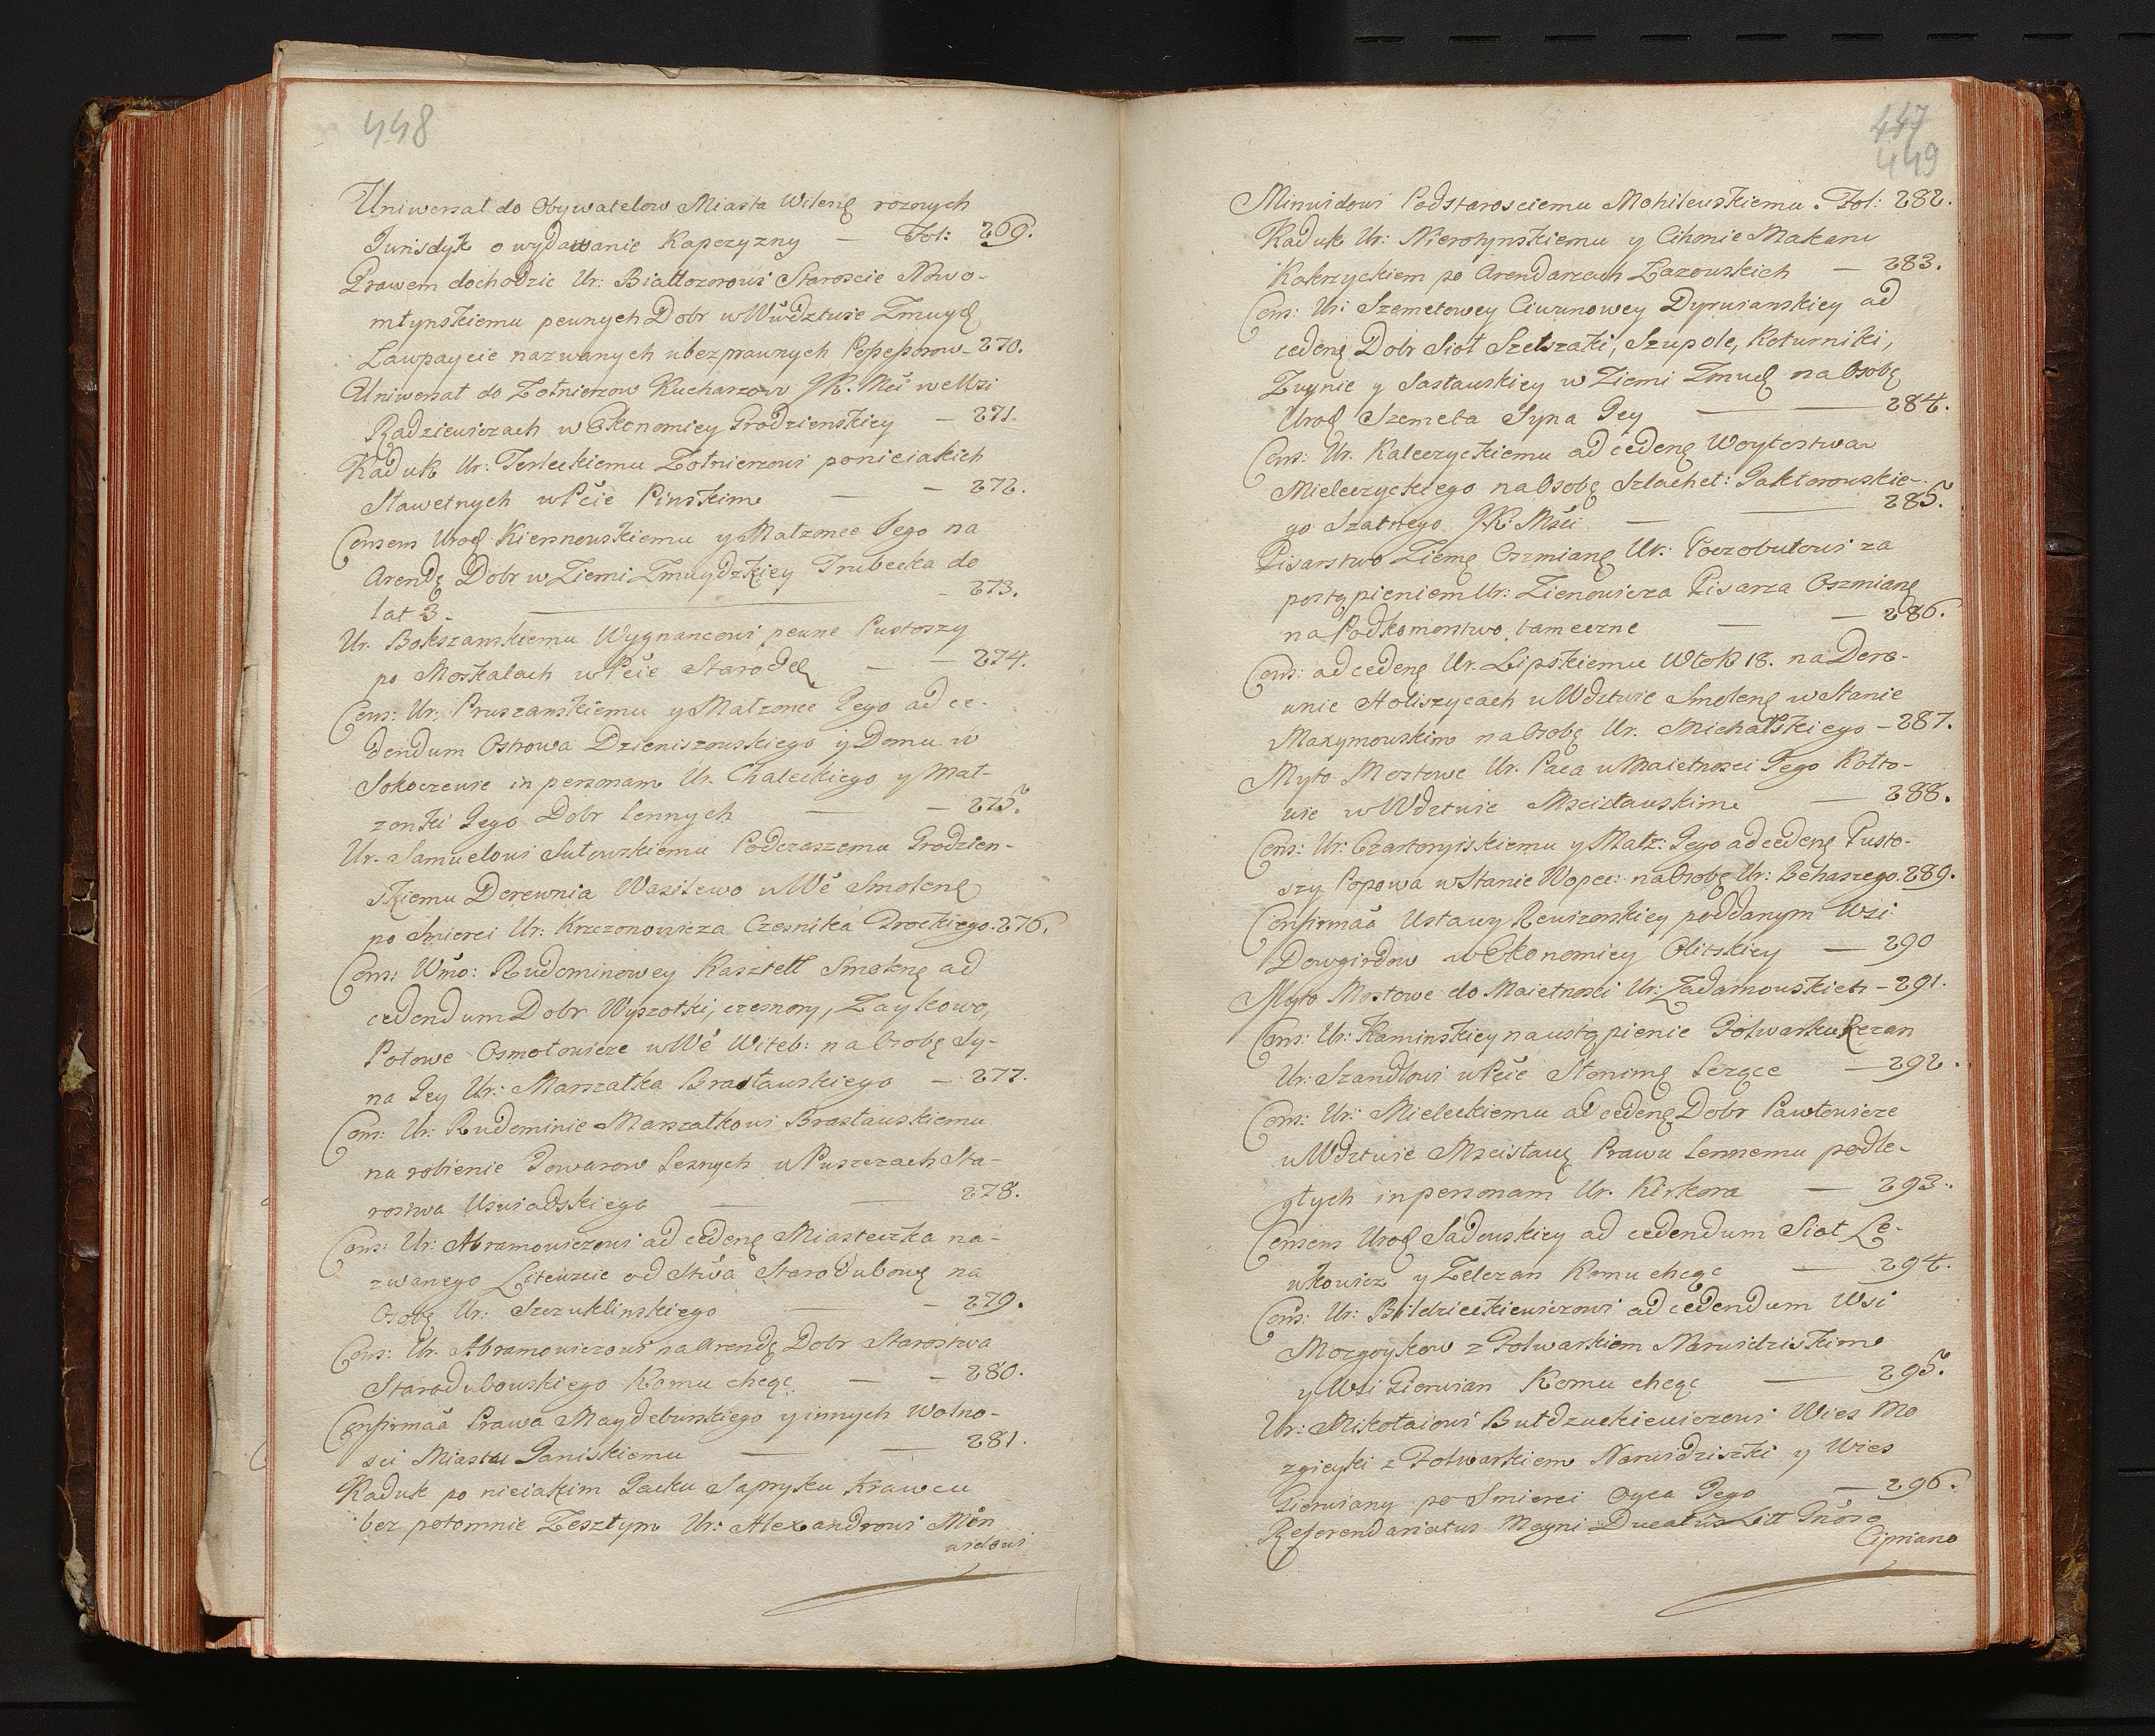 448
Uniwersał do Obywatelow Miasta Wilenę roznych
Iurisdyk o wydawanie Kapczyzny — Fol: 269.
Prawem dochodzic Ur: Białłozorowi Staroscie Nowo-
młynskiemu pewnych Dobr w Wudztwie Zmuyd
Lawpaycie nazwanych ubezprawnych Possessorow - 270.
Uniwersał do Zołnierzow Kucharzow JK. Mći we Wsi
Radziewiczach w Ekonomiey Grodzienskiey — 271.
Kaduk Ur: Terleckiemu Zołnierzowi poniciakich
Sławetnych w Pćie Pinskim — — 272.
Consens Urod Kiersnowskiemu y Małzonce Jego na
Arendę Dobr w Ziemi Zmuydzkiey Trubecka do
lat 3. — 273.
Ur. Bokszanskiemu Wygnancowi pewne Pustoszy
po Moskalach w Pćie Starodę — — 274.
Cons: Ur: Pruszanskiemu y Małzonce Jego ad ce-
dendum Ostrowa Dzieniszowskiego y Domu w
Sokoczewie in personam Ur. Chaleckiego y Mał-
zonki Jego Dobr lennych — — 275.
Ur. Samuelowi Sutowskiemu Podczaszemu Grodzien-
skiemu Derewnia Wasilewo w Wć Smolenę
po Smierci Ur: Krzczonowicza Czesnika Trockiego. 276.
Cons: Wmo: Rudominowey Kasztell Smolenę ad
cedendum Dobr Wyszotki, czesnory, Zaykowo,
Połowe Osmołowicze w Wć Witeb: na Osobę Sy-
na Jey Ur: Marszałka Brasławskiego — 277.
Cons: Ur: Rudominie Marszałkowi Brasławskiemu
na robienie Towarow Lesnych w Puszczach Sta-
rostwa Uswiadskiego — 278.
Cons: Ur: Abramowiczowi ad cedenę Miasteczka na-
zwanego Litewzcie od Stwa Starodubowę na
Osobę Ur: Szczuklinskiego — - 279.
Cons: Ur. Abramowiczowi na Arendę Dobr Starostwa
Starodubowskiego Komu chcąc — - 280.
Confirmãa Prawa Maydeburskiego y innych Wolno-
sci Miastu Janiskiemu — — 281.
Kaduk po niciakim Jacku Sapryku Krawcu
bez potomnie Zeszłym Ur: Alexandrowi Min
widowi
447
449
Minwidowi Podstarosciemu Mohilewskiemu. Fol: 282.
Kaduk Ur: Nierotynskiemu y Cihonie Makaru
Kokrzyckiem po Arendarzach Lazowskich — 283.
Cons: Ur: Szemetowey Ciwunowey Dyrwianskiey ad
cedenę Dobr Sioł Szelszaki, Szupole, Koturniki,
Zuynie y Sastawskiey w Ziemi Zmuę na Osobę
Urod Szemeta Syna Jey — — 284.
Cons: Ur. Kaleczyckiemu ad cedenę Woytostwa
Mieleczyckiego na Osobę Szlachet: Jaktorowskie-
go Szatnego JK: Mści — — 285.
Pisarstwo Ziemę Oszmianę Ur: Poczobutowi za
postąpieniem Ur: Zienowicza Pisarza Oszmianę
na Podkomorstwo tameczne — — 286.
Cons: ad cedenę Ur. Lipskiemu Włok 18. na Dere-
wnie Holiszycach w Wdztwie Smolenę w Stanie
Maxymowskim na Osobę Ur. Michałskiego - 287.
Myto Mostowe Ur. Paca w Maiętnosci Jego Kołto-
wie w Wdztwie Mscisławskim — 288.
Cons: Ur: Czartoryiskiemu y Małz: Jego ad cedenę Pusto-
szy Popowa w Stanie Wopec: na Osobę Ur: Behaszego. 289.
Confirmãa Ustawy Rewizorskiey poddanym Wsi
Dowgirdow w Ekonomiey Olitskiey — 290
Myto Mostowe do Maiętnosci Ur: Zadarnowskich - 291.
Cons: Ur: Kaminskiey na ustąpienie Folwarku Rezan
Ur: Szandłowi w Pćie Słonimę Leząće — 292.
Cons: Ur: Mieleckiemu ad cedenę Dobr Pawłowicze
w Wdztwie Mscisławę Prawu Lennemu podle-
głych in personam Ur. Kirkora — 293.
Consens Urod Sadowskiey ad cedendum Sioł Le-
wkowicz y Zelezan Komu chcąc — 294.
Cons: Ur: Bildzieckiewiczowi ad cedendum Wsi
Mozgoykow z Folwarkiem Narwidziskim
y Wsi Gierwian Komu chcąc — 295.
Ur: Mikołaiowi Butdzuckiewiczowi Wies Mo
zgieyki z Folwarkiem Narwidziszki y Wies
Gierwiany po Smierci Oyca Jego — 296.
Referendariatus Magni Ducatus Litt Gnoso
Cipriano